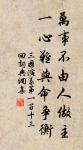 萬事不由人做主
一心難與命爭衡
三國演義第一百十三
回詞典網集